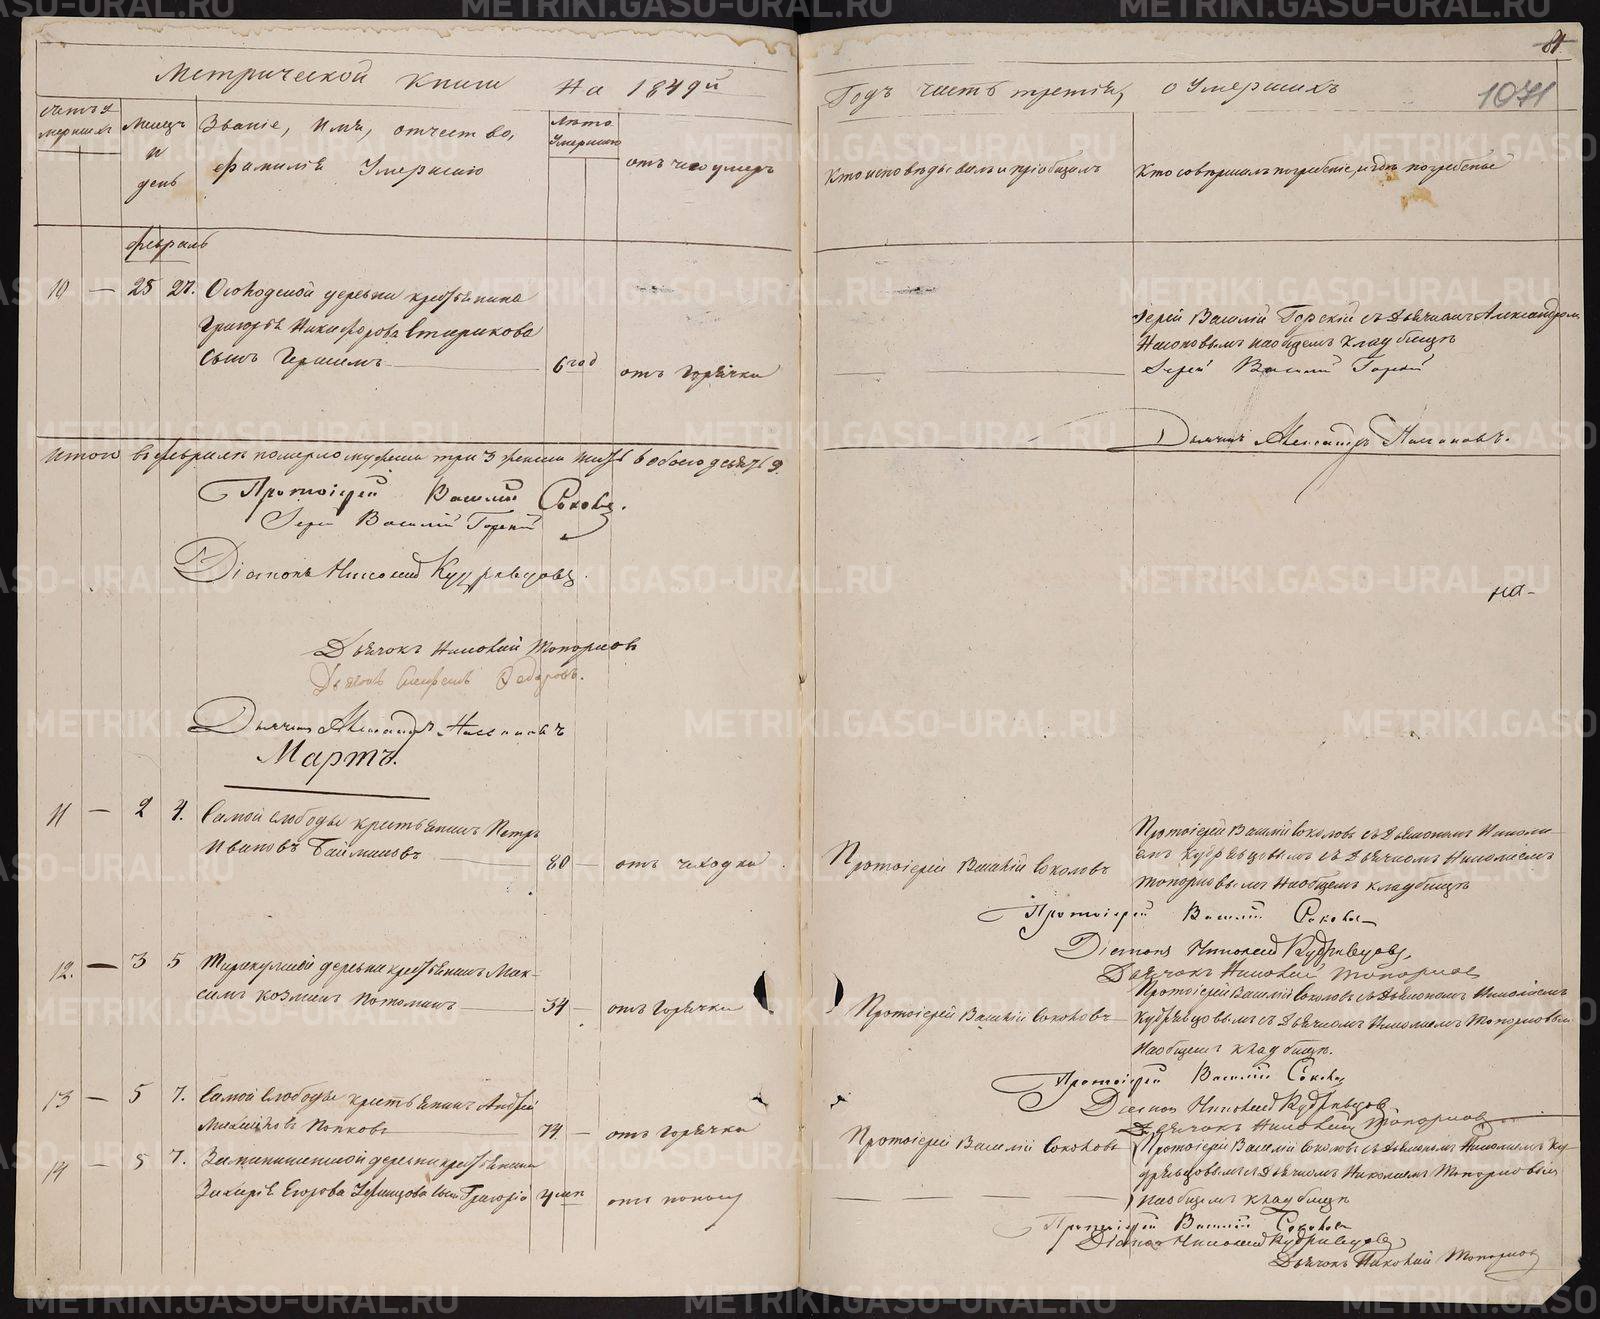 Метрической книги на 1849й
Годъ часть третія, о умершихъ
84
1071
Счетъ умершихъ
Месецъ и день
Званіе, имя, отчество, фамилія умершаго
Лета умершаго
отъ чего умеръ
Кто исповедывалъ и пріобщалъ
Кто совершалъ погребеніе, и где погребены
февраль
10 — 25 27. деревни крестьянина
Григорья Никифорова Старикова
сынъ Герасимъ 6 год отъ горячки
Іерей Василій Горскій съ дьячкомъ Александромъ
на общемъ кладбище
Іерей Василій Горскій
Дьячекъ Александръ
Итого въ феврале померло мужеска три 3 женска шесть 6 обоего девять 9.
Протоіерей Василій Соколовъ.
Іерей Василій Горскій
Діаконъ Николай Кудрявцовъ.
на-
Дьячокъ Николай Топорковъ
Дьячекъ Александръ
Мартъ.
11 — 2 4. Самой слободы крестьянинъ Петръ
Ивановъ 80 — отъ чахотки
Протоіерей Василій Соколовъ
Протоіерей Василій Соколовъ съ дьякономъ Никола-
емъ Кудрявцовымъ съ дьячкомъ Николаемъ
Топорковымъ на общемъ кладбище
Протоіерей Василій Соколовъ
Діаконъ Николай Кудрявцовъ.
Дьячокъ Николай Топорковъ
12. — 3 5 деревни крестьянинъ Мак-
симъ Козминъ Потапинъ 34 — отъ горячки
Протоіерей Василій Соколовъ
Протоіерей Василій Соколовъ съ дьякономъ Николаемъ
Кудрявцовымъ съ дьячкомъ Николаемъ Топорковымъ
на общемъ кладбище.
Протоіерей Василій Соколовъ
Діаконъ Николай Кудрявцовъ
Дьячокъ Николай Топорковъ
13 — 5 7. Самой слободы крестьянинъ Андрей
Попковъ 74 — отъ горячки
Протоіерей Василій Соколовъ
Протоіерей Василій Соколовъ съ дьякономъ Николаемъ Ку-
дрявцовымъ съ дьячкомъ Николаемъ Топорковымъ
на общемъ кладбище
14 — 5 7. деревни крестьянина
Захарія Егорова сынъ Григорій отъ поносу
Протоіерей Василій Соколовъ
Діаконъ Николай Кудрявцовъ
Дьячокъ Николай Топорковъ
METRIKI.GASO-URAL.RU